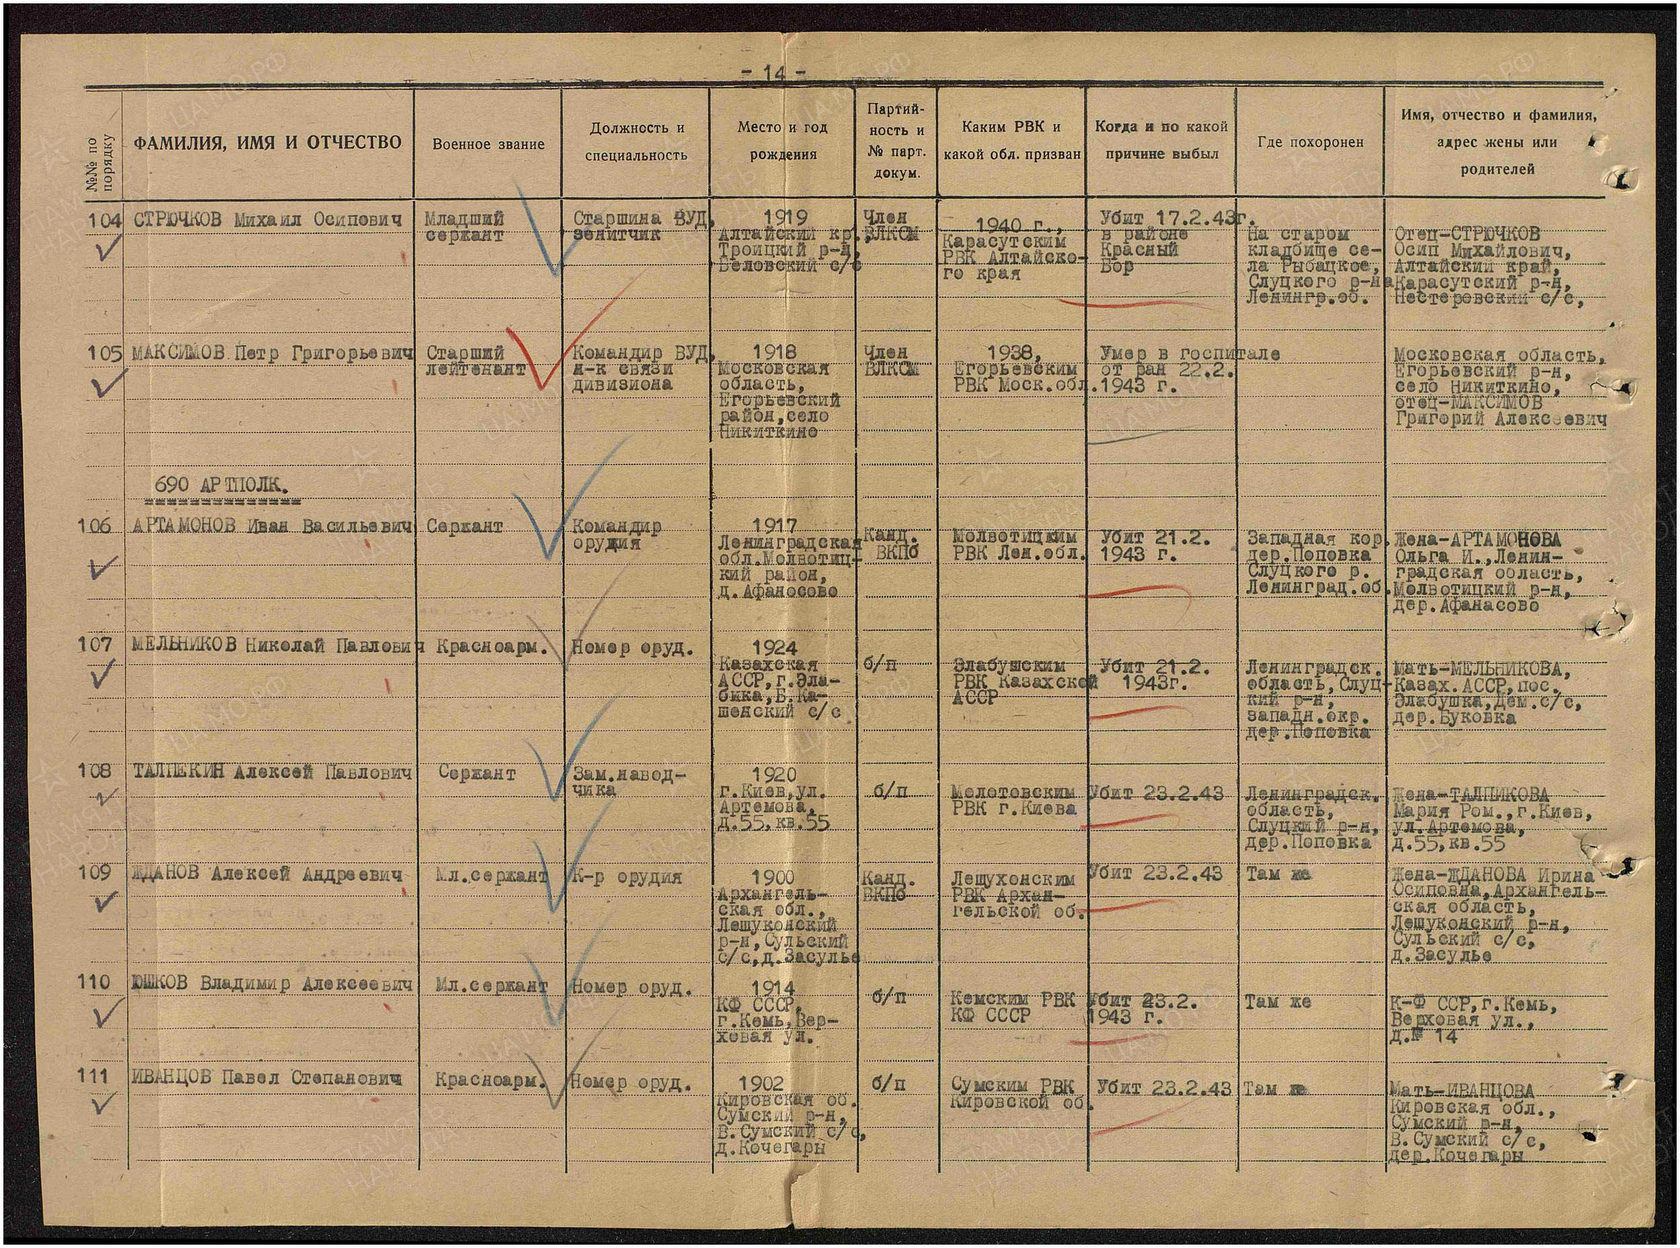 - 14 -
№№ по порядку
ФАМИЛИЯ, ИМЯ И ОТЧЕСТВО
Военное звание
Должность и
специальность
Место и год
рождения
Партий-
ность и
№ парт.
докум.
Каким РВК и
какой обл. призван
Когда и по какой
причине выбыл
Где похоронен
Имя, отчество и фамилия,
адрес жены или
родителей
104
СТРЮЧКОВ Михаил Осипович
Младший
сержант
Старшина ВУД,
зенитчик
1919
Алтайский кр.
Троицкий р-н,
Беловский с/с
Член
ВЛКСМ
1940 г.,
Карасутским
РВК Алтайско-
го края
Убит 17.2.43г.
в районе
Красный
Бор
На старом
кладбище се-
ла Рыбацкое,
Слуцкого р-на
Ленингр.об.
Отец-СТРЮЧКОВ
Осип Михайлович,
Алтайский край,
Карасутский р-н,
Нестеровский с/с,
105
МАКСИМОВ Петр Григорьевич
Старший
лейтенант
Командир ВУД,
н-к связи
дивизиона
1918
Московская
область,
Егорьевский
район,село
Никиткино
Член
ВЛКСМ
1938,
Егорьевским
РВК Моск.обл.
Умер в госпитале
от ран 22.2.
1943 г.
Московская область,
Егорьевский р-н,
село Никиткино,
отец-МАКСИМОВ
Григорий Алексеевич
690 АРТПОЛК.
106
АРТАМОНОВ Иван Васильевич
Сержант
Командир
орудия
1917
Ленинградская
обл.Молвотиц-
кий район,
д.Афаносово
Канд.
ВКПб
Молвотицким
РВК Лен.обл.
Убит 21.2.
1943 г.
Западная кор.
дер.Поповка
Слуцкого р.
Ленинград.об.
Жена-АРТАМОНОВА
Ольга И.,Ленин-
градская область,
Молвотицкий р-н,
дер.Афанасово
107
МЕЛЬНИКОВ Николай Павлович
Красноарм.
Номер оруд.
1924
Казахская
АССР,г.Эла-
бика,Б.Ка-
шенский с/с
б/п
Элабушским
РВК Казахской
АССР
Убит 21.2.
1943г.
Ленинградск.
область,Слуц-
кий р-н,
западн.окр.
дер.Поповка
Мать-МЕЛЬНИКОВА,
Казах.АССР,пос.
Элабушка,Дем.с/с,
дер.Буковка
108
ТАЛПЕКИН Алексей Павлович
Сержант
Зам.навод-
чика
1920
г.Киев,ул.
Артемова,
д.55,кв.55
б/п
Молотовским
РВК г.Киева
Убит 23.2.43
Ленинградск.
область,
Слуцкий р-н,
дер.Поповка
Жена-ТАЛПИКОВА
Мария Ром.,г.Киев,
ул.Артемова,
д.55,кв.55
109
ЖДАНОВ Алексей Андреевич
Мл.сержант
К-р орудия
1900
Архангель-
ская обл.,
Лешуконский
р-н,Сульский
с/с,д.Засулье
Канд.
ВКПб
Лешухонским
РВК Архан-
гельской об.
Убит 23.2.43
Там же
Жена-ЖДАНОВА Ирина
Осиповна,Архангель-
ская область,
Лешуконский р-н,
Сульский с/с,
д.Засулье
110
ЮШКОВ Владимир Алексеевич
Мл.сержант
Номер оруд.
1914
КФ СССР,
г.Кемь,Вер-
ховая ул.
б/п
Кемским РВК
КФ СССР
Убит 23.2.
1943 г.
Там же
К-Ф ССР,г.Кемь,
Верховая ул.,
д.№ 14
111
ИВАНЦОВ Павел Степанович
Красноарм.
Номер оруд.
1902
Кировская об.
Сумский р-н,
В.Сумский с/с,
д.Кочегары
б/п
Сумским РВК
Кировской об.
Убит 23.2.43
Там же
Мать-ИВАНЦОВА
Кировская обл.,
Сумский р-н,
В.Сумский с/с,
дер.Кочегары